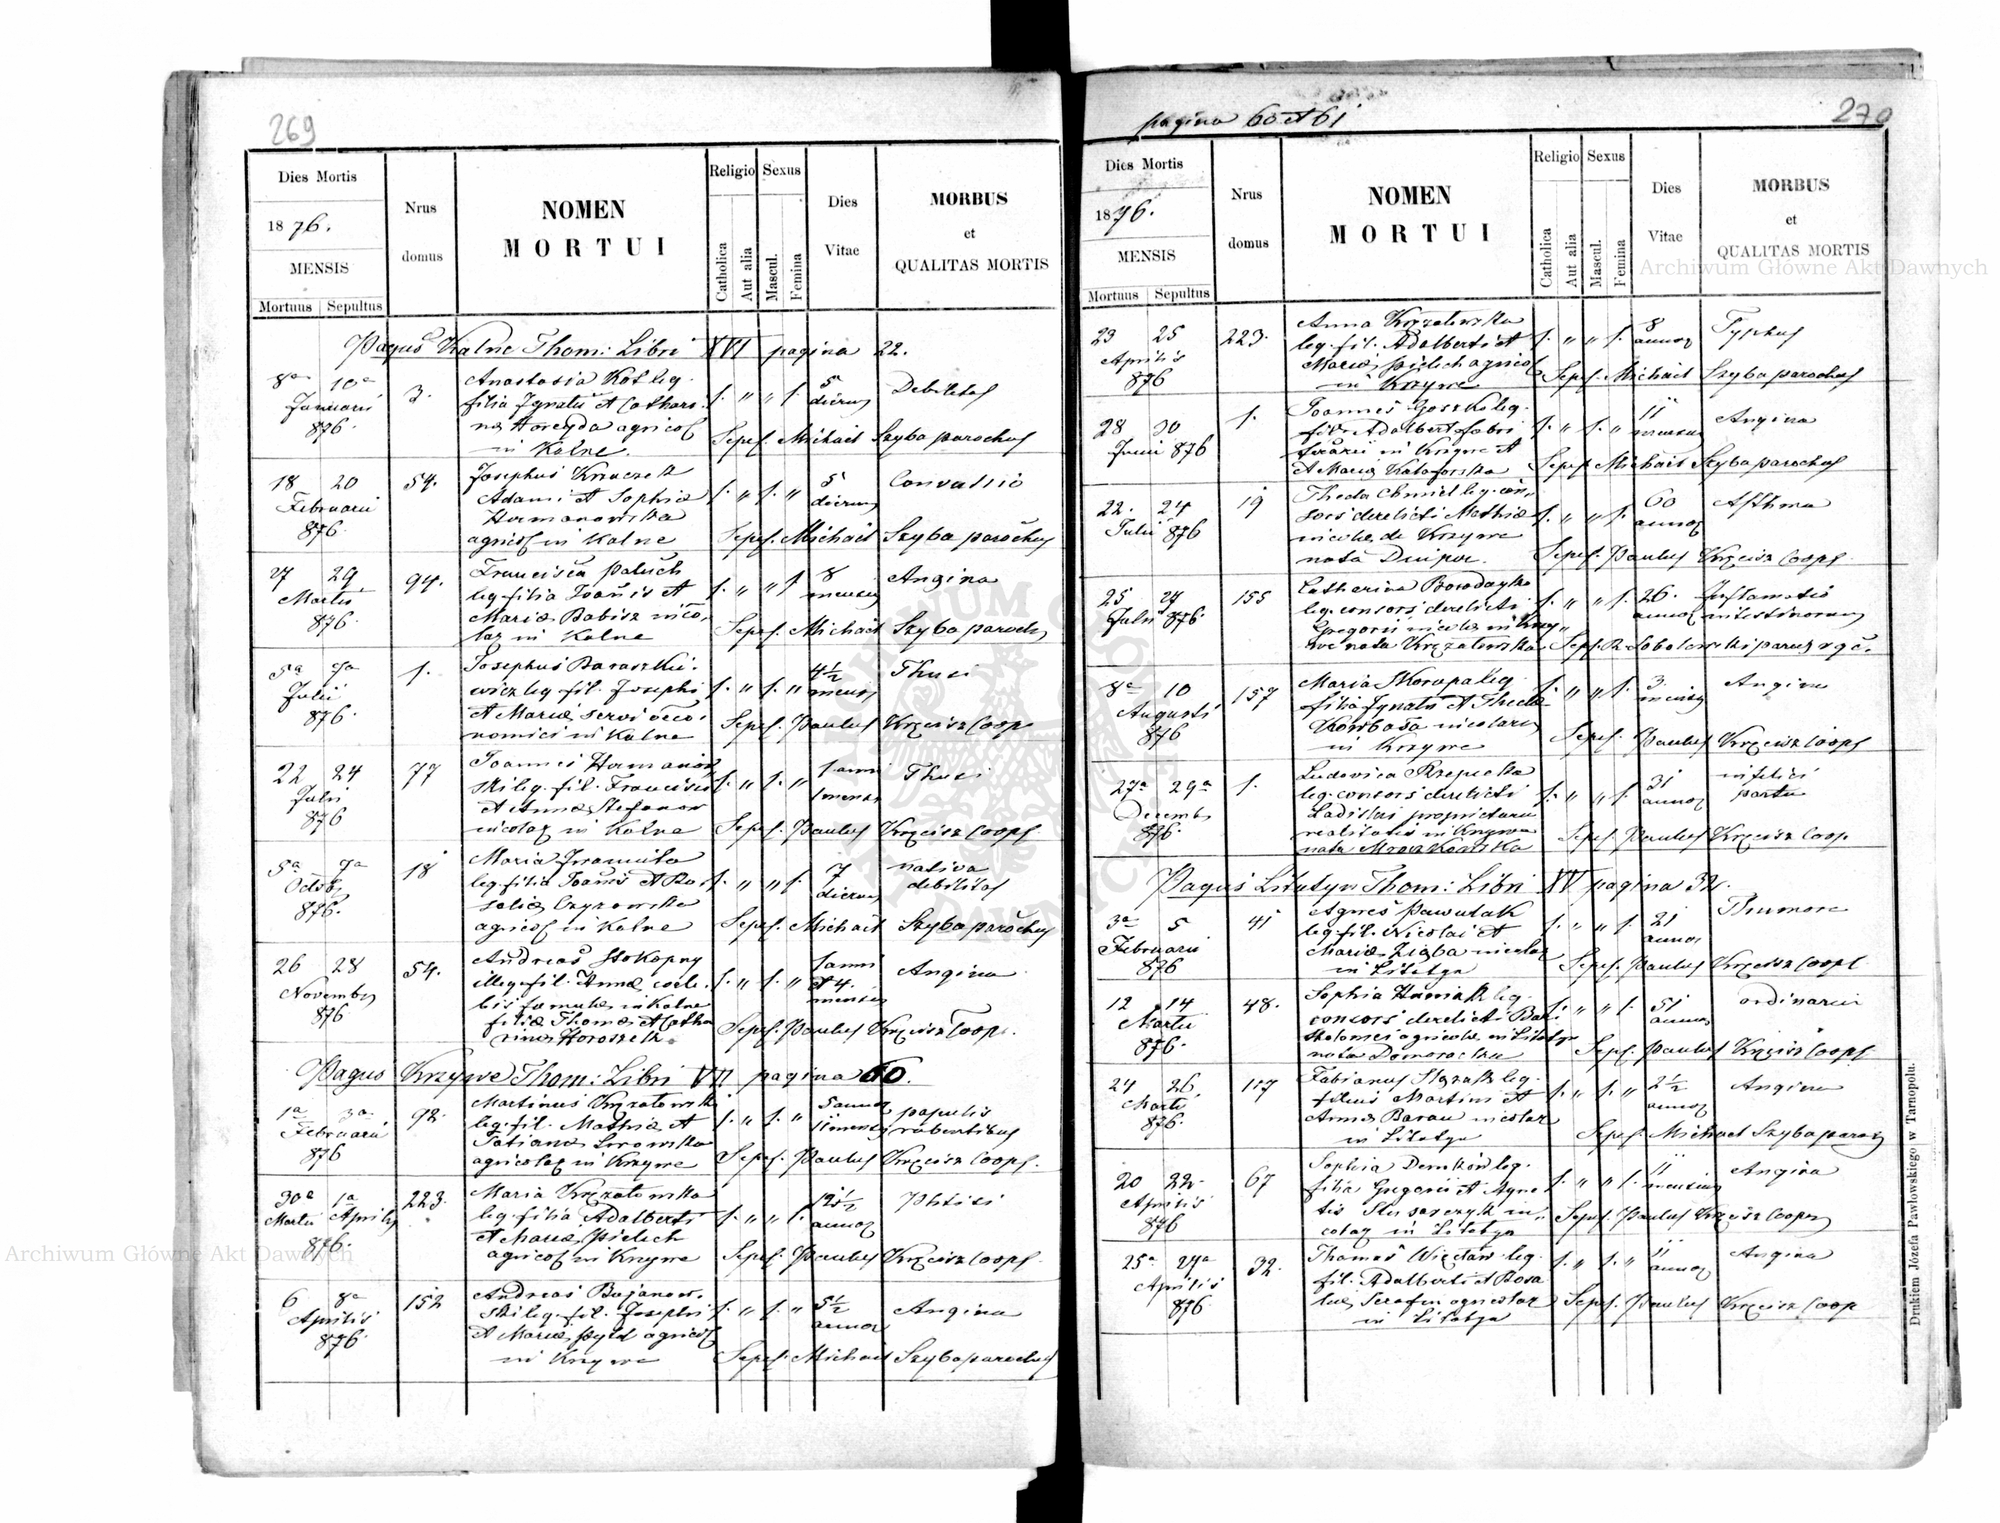 269
Dies Mortis
1876.
MENSIS
Mortuus Sepultus
Nrus
domus
NOMEN
MORTUI
Religio
Catholica
Aut alia
Sexus
Mascul.
Femina
Dies
Vitae
MORBUS
et
QUALITAS MORTIS
Pagus Kalne Thom: Libri XVI pagina 22.
8a 10a
Januarii
876.
3.
Anastasia Kot leg.
filia Ignatii et Cathari-
na agricol
in Kalne.
5
dierum
Debilitas
Sepel. Michael Szyba parochus
18 20
Februarii
876.
54.
Josephus
Adami et Sophiae
Hermanowska
agricol in Kalne
5
dierum
Convulsio
Sepel. Michael Szyba parochus
27 29
Martii
876.
94.
Francisca Paluch
leg. filia Joannis et
Maria Babisz inco-
lar in Kalne
8
menses
Angina
Sepel. Michael Szyba paroch
5a 7a
Julii
876.
1.
Josephus Baraszkie-
wicz leg. fil. Josephi
et Maria servi oeco-
nomici in Kalne
4½
mens
Thusi
Sepel. Paulus Krzcisz Coop
22 24
Julii
876
77
Joannes Hermanow
ski leg. fil. Francisci
et Anna Stefanow
incolar in Kalne
1 anni
1 mens
Thusi
Sepel. Paulus Krzcisz Coop.
5a 7a
Octob
876.
18
Maria
leg. filia Joannis et Ro-
salia Czyzowska
agricol in Kalne
7
dierum
nativa
debilitas
Sepel. Michael Szyba parochus
26 28
Novembr
876
54.
Andreas Stokopny
illeg. fil. Anna coele-
bis famula in Kalne
filia Thoma et Catha
rina Horoszek.
1 anni
et 4.
menses
Angina
Sepel. Paulus Krzcisz Coop.
Pagus Krzywe Thom: Libri VII pagina 60.
1a 3a
Februarii
876
92.
Martinus Krzatowski
leg. fil. Mathia et
Tatiana
agricolar in Krzywe
5 annor
11 mens
papulis
rubentibus
Sepel. Paulus Krzcisz Coop.
30a 1a
Martii Aprilis
876.
223.
Maria Krzatowska
leg. filia Adalberti
et Maria Pielech
agricol in Krzywe
12½
annor
Phtisi
Sepel. Paulus Krzcisz Coop.
6 8a
Aprilis
876.
152
Andreas Bojanow-
ski leg. fil. Josephi
et Maria agricol
in Krzywe
5½
annor
Angina
Sepel. Michael Szyba parochus
pagina 60 et 61
270
Dies Mortis
1876.
MENSIS
Mortuus Sepultus
Nrus
domus
NOMEN
MORTUI
Religio
Catholica
Aut alia
Sexus
Mascul.
Femina
Dies
Vitae
MORBUS
et
QUALITAS MORTIS
23 25
Aprilis
876
223.
Anna Krzatowska
leg. fil. Adalberti et
Maria Pielech agricol
in Krzywe
8
annor
Typhus
Sepel. Michael Szyba parochus
28 30
Junii 876
1.
Joannes Goszko leg.
fil. Adalberti fabri
ferrarii in Krzywe et
et Maria
11
mensium
Angina
Sepel. Michael Szyba parochus
22. 24
Julii 876
19
Thecla Chmiel leg. con-
sors derelicti Mathia
incola de Krzywe
nata
60
annor
Asthma
Sepel. Paulus Krzcisz Coop.
25 27
Julii 876.
155
Catharina
leg. consors derelicti
Gregorii incola in Krzy-
we nata Krzatowska
26.
annor
Inflamatio
intestinorum
Sepel. R. Sobolewski paroch r. g. c.
8a 10
Augusti
876
157
Maria Skorupa leg.
filia Ignatii et Thecla
Kowbasa incolar
in Krzywe
3.
mensium
Angina
Sepel. Paulus Krzcisz Coop.
27a 29a
Decembr
876.
1.
Ludovica Rzepecka
leg. consors derelicti
Ladislai proprietarii
realitatis in Krzywe
nata
31
annor
infelici
partu
Sepel. Paulus Krzcisz Coop.
Pagus Litatyn Thom: Libri XV pagina 32.
3a 5
Februarii
876
41
Agnes Pawulak
leg. fil. Nicolai et
Maria Zięba incolar
in Litatyn
21
annor
Sepel. Paulus Krzcisz Coop.
12 14
Martii
876.
48.
Sophia leg.
consors derelicti Bart
holomei agricola in Litatyn
nata Domoracka
51
annor
ordinaria
Sepel. Paulus Krzcisz Coop.
24 26
Martii
876.
117
Fabianus leg.
filius Martini et
Anna Baran incolar
in Litatyn
2½
annor
Angina
Sepel. Michael Szyba paroch
20 22
Aprilis
876
67
Sophia Demków leg.
filia Gregorii et Agne
tis Slusarczyk in-
colar in Litatyn
11
mensium
Angina
Sepel. Paulus Krzcisz Cooper
25a 27a
Aprilis
876
32.
Thomas Więcław leg.
fil. Adalberti et Rosa
lia Serafin agricolar
in Litatyn
11
annor
Angina
Sepel. Paulus Krzcisz Coop
Drukiem Józefa Pawłowskiego w Tarnopolu.
Archiwum Główne Akt Dawnych
Archiwum Główne Akt Dawnych
ARCHIWUM GŁÓWNE AKT DAWNYCH